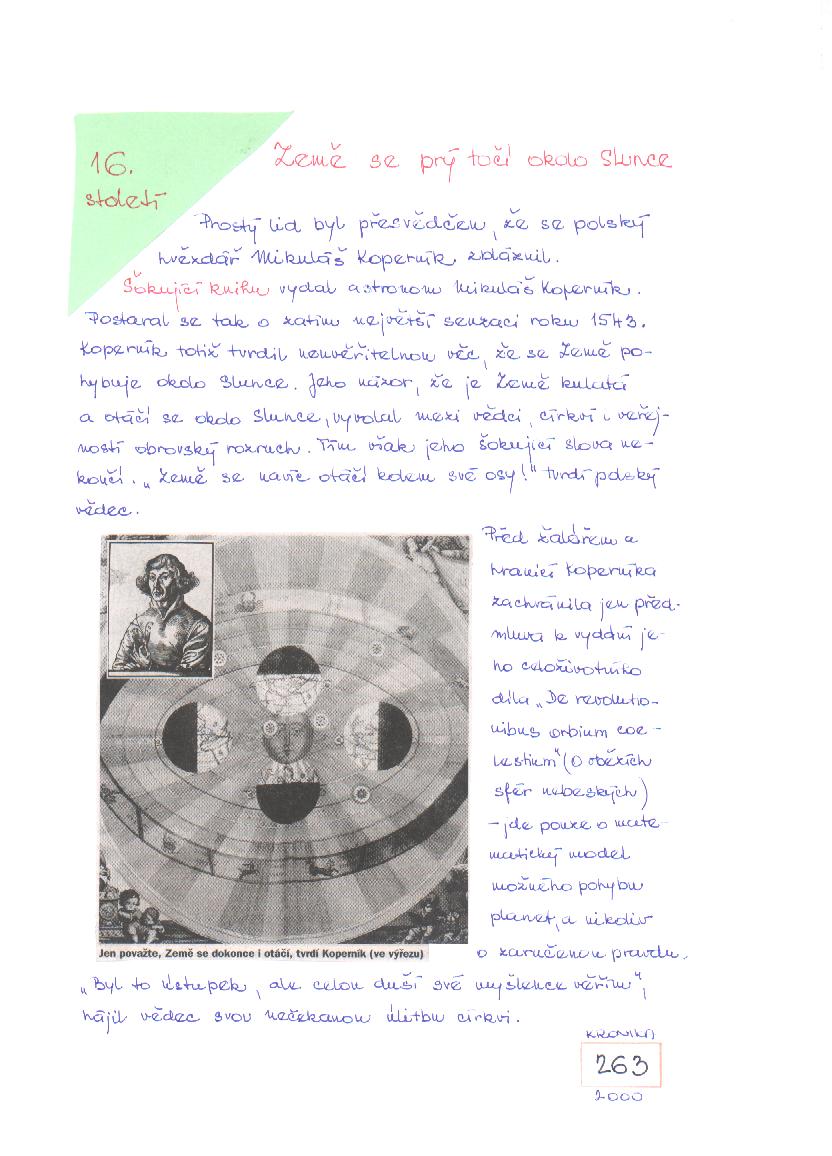 16.
století
Země se prý točí okolo Slunce
Prostý lid byl přesvědčen, že se polský
hvězdář Mikuláš Koperník zbláznil.
Šokující knihu vydal astronom Mikuláš Koperník.
Postaral se tak o zatím největší senzaci roku 1543.
Koperník totiž tvrdil neuvěřitelnou věc, že se Země po-
hybuje okolo Slunce. Jeho názor, že je Země kulatá
a otáčí se okolo Slunce, vyvolal mezi vědci, církví i veřej-
ností obrovský rozruch. Tím však jeho šokující slova ne-
končí. „Země se navíc otáčí kolem své osy!“ tvrdí polský
vědec.
Před žalářem a
hranicí Koperníka
zachránila jen před-
mluva k vydání je-
ho celoživotního
díla „De revolutio-
nibus orbium coe-
lestium“ (O obězích
sfér nebeských)
- jde pouze o mate-
matický model
možného pohybu
planet, a nikoliv
o zaručenou pravdu.
Jen považte, Země se dokonce i otáčí, tvrdí Koperník (ve výřezu)
„Byl to ústupek, ale celou duší své myšlence věřím“,
hájil vědec svou nečekanou úlitbu církvi.
KRONIKA
263
2000